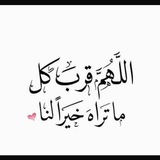 اللَّهُمَّ قربَ كل
ما تَراه خَيراً لنا